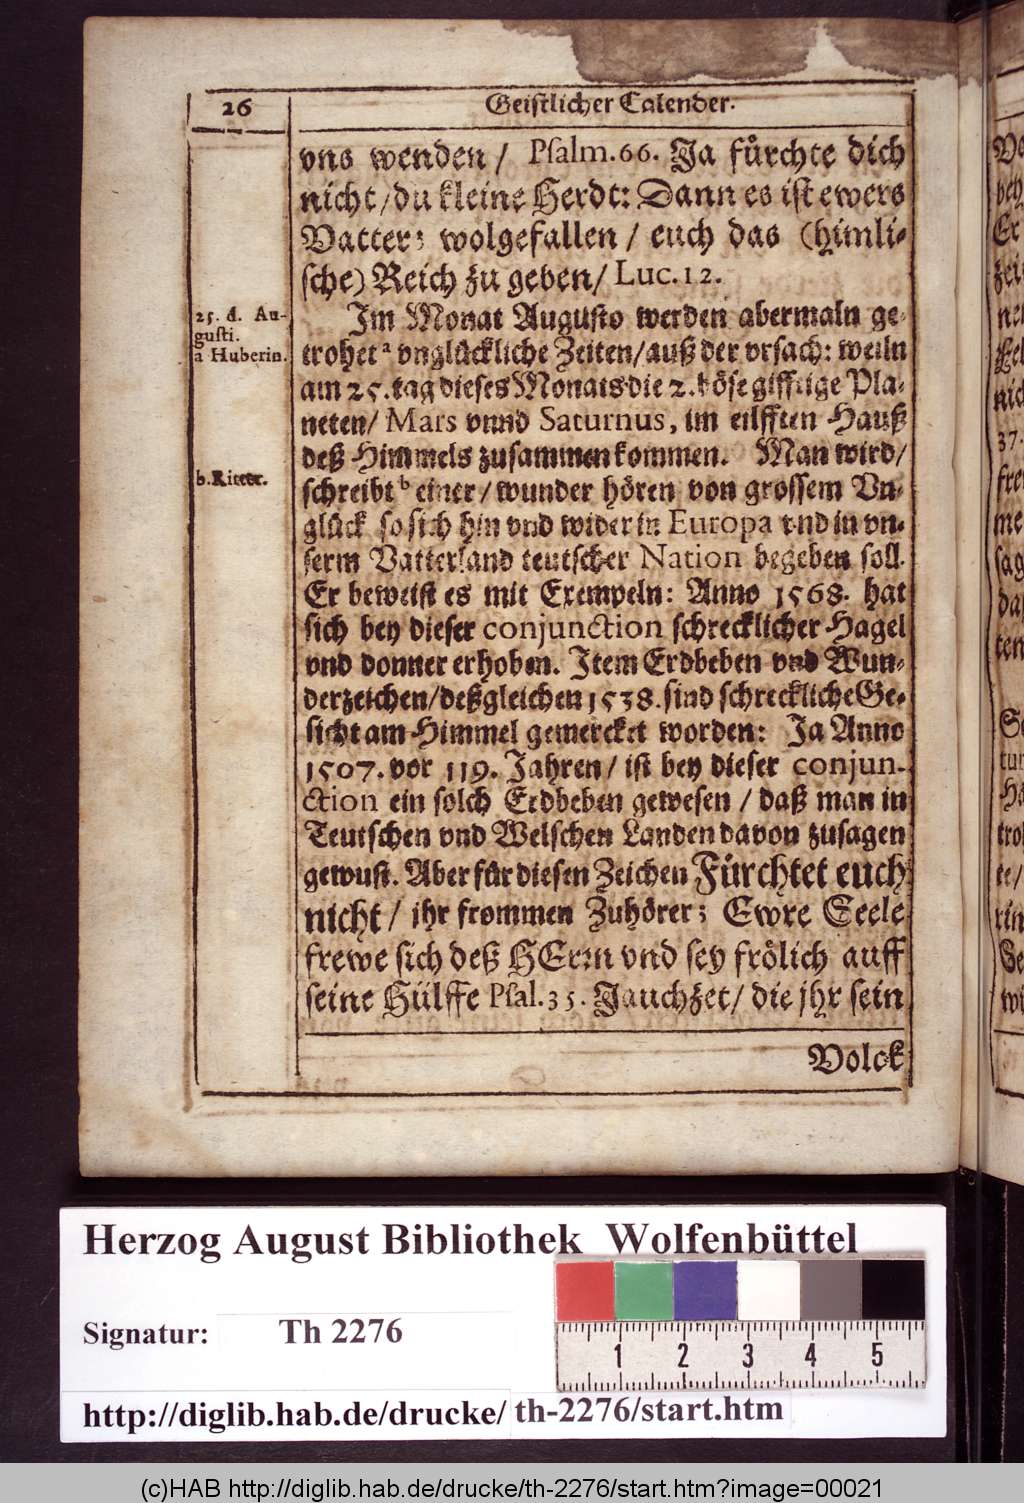 26
Geistlicher Calender.
vns wenden / Psalm.66. Ja fürchte dich
nicht/du kleine Herdt: Dann es ist ewers
Vatters wolgefallen / euch das (himli-
sche) Reich zu geben/ Luc.12.
25. d. Au-
gusti.
a Huberin.
Im Monat Augusto werden abermaln ge-
trohet a vnglückliche Zeiten/auß der vrsach: weiln
am 25.tag dieses Monats die 2.böse gifftige Pla-
neten/ Mars vnnd Saturnus, im eilfften Hauß
deß Himmels zusammen kommen. Man wird/
b.Ritter.
schreibt b einer/wunder hören von grossem Vn-
glück so sich hin vnd wider in Europa vnd in vn-
serm Vatterland teutscher Nation begeben soll.
Er beweist es mit Exempeln: Anno 1568. hat
sich bey dieser conjunction schrecklicher Hagel
vnd donner erhoben. Item Erdbeben vnd Wun-
derzeichen/deßgleichen 1538.sind schreckliche Ge-
sicht am Himmel gemercket worden: Ja Anno
1507. vor 119. Jahren/ ist bey dieser conjun-
ction ein solch Erdbeben gewesen / daß man in
Teutschen vnd Welschen Landen davon zusagen
gewust. Aber für diesen Zeichen Fürchtet euch
nicht/ ihr frommen Zuhörer; Ewre Seele
frewe sich deß HErrn vnd sey frölich auff
seine Hülffe Psal.35. Jauchzet/ die jhr sein
Volck
Herzog August Bibliothek Wolfenbüttel
Signatur: Th 2276
1 2 3 4 5
http://diglib.hab.de/drucke/ th-2276/start.htm
(c)HAB http://diglib.hab.de/drucke/th-2276/start.htm?image=00021